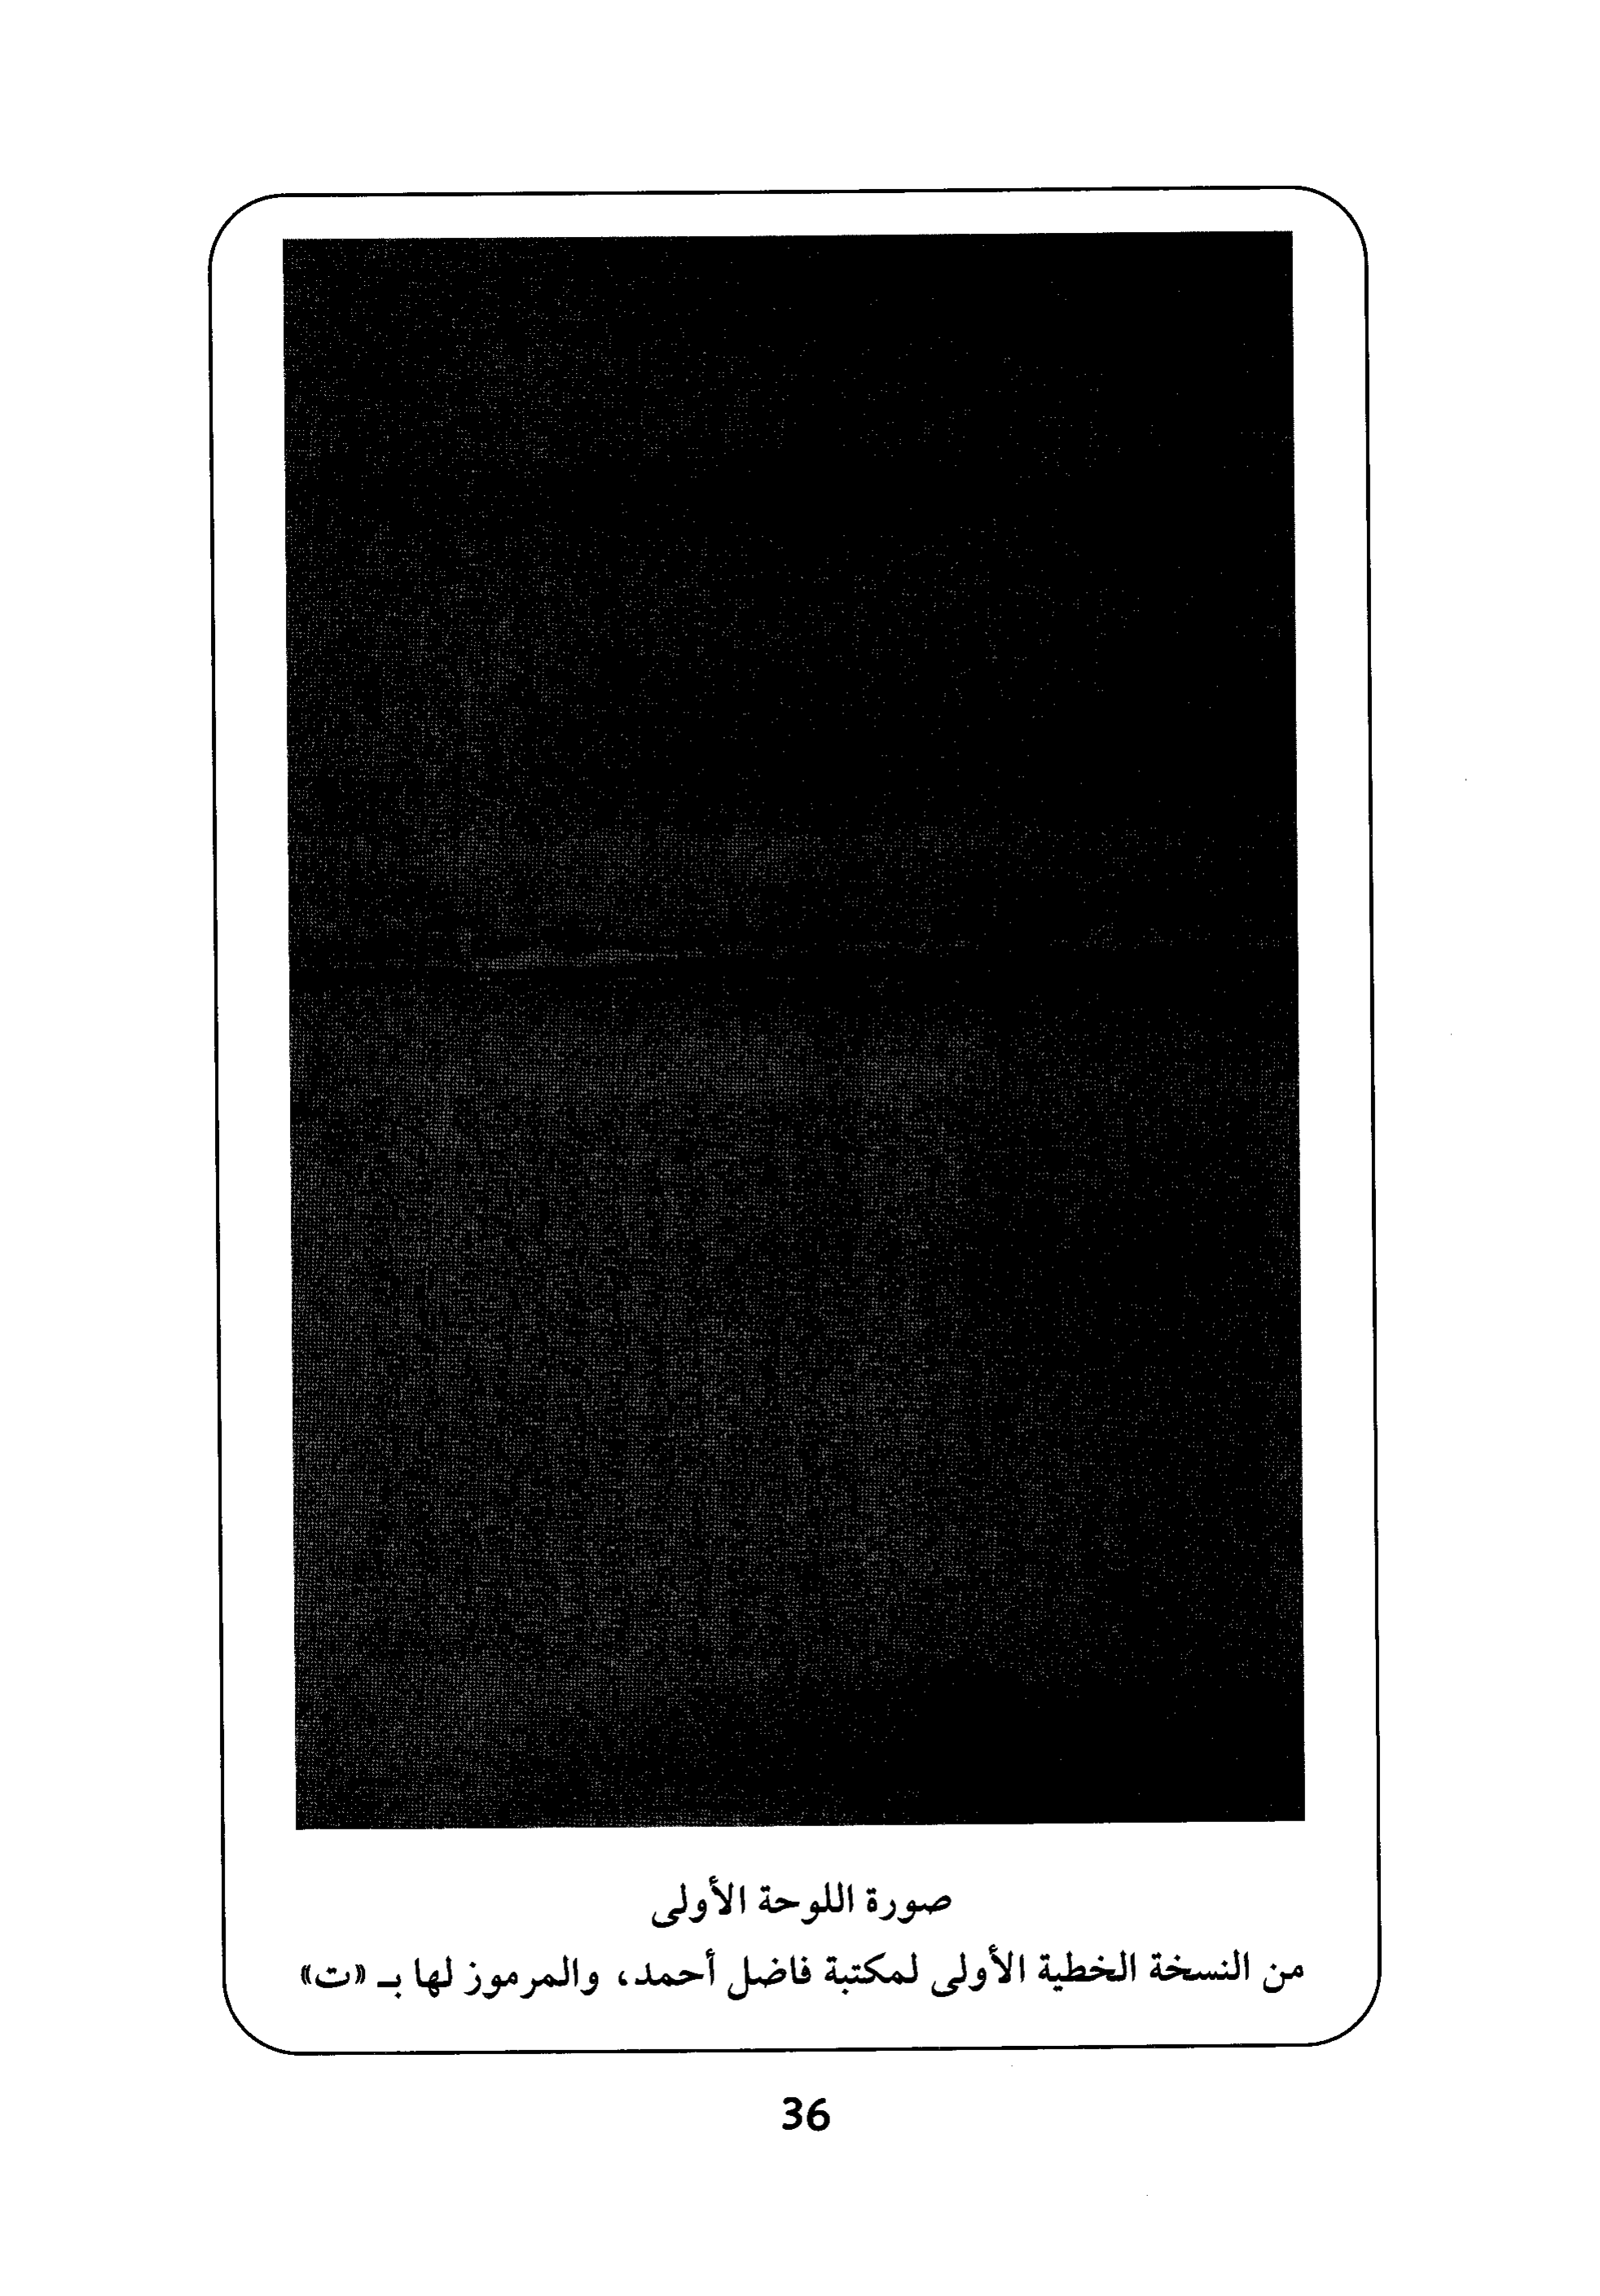 صورة اللوحة الأولى
من النسخة الخطية الأولى لمكتبة فاضل أحمد، والمرموز لها بـ «ت»
36